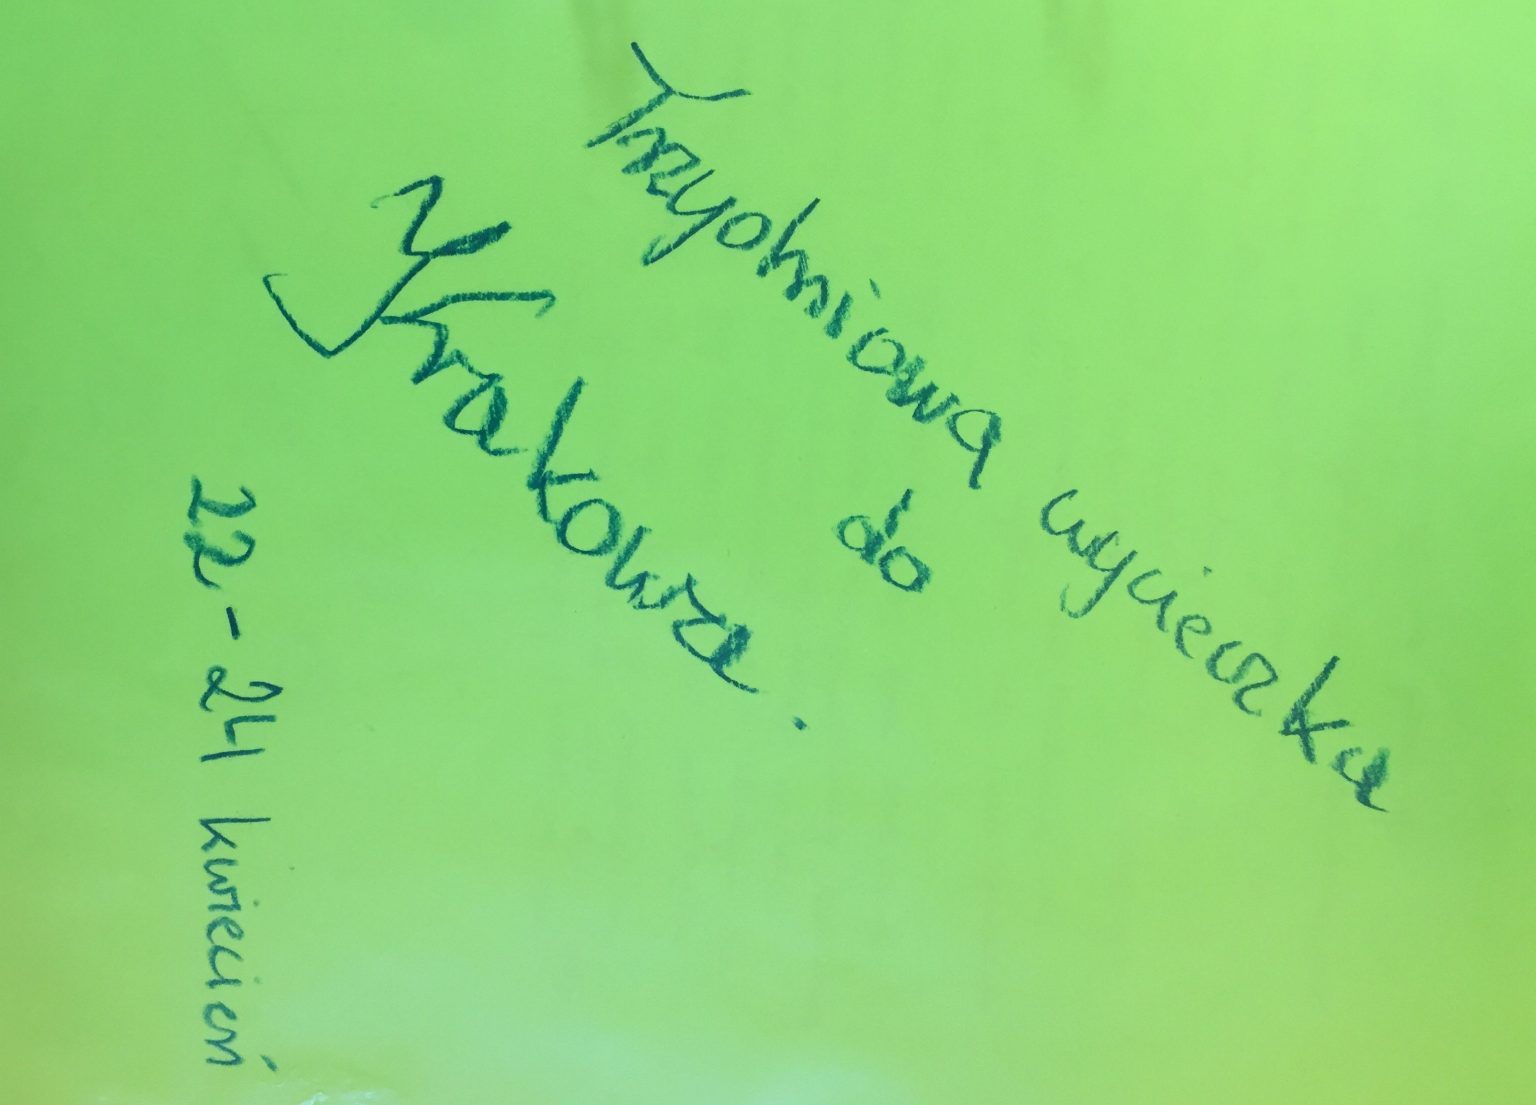 Trzydniowa wycieczka
do
Krakowa.
22-24 kwiecień